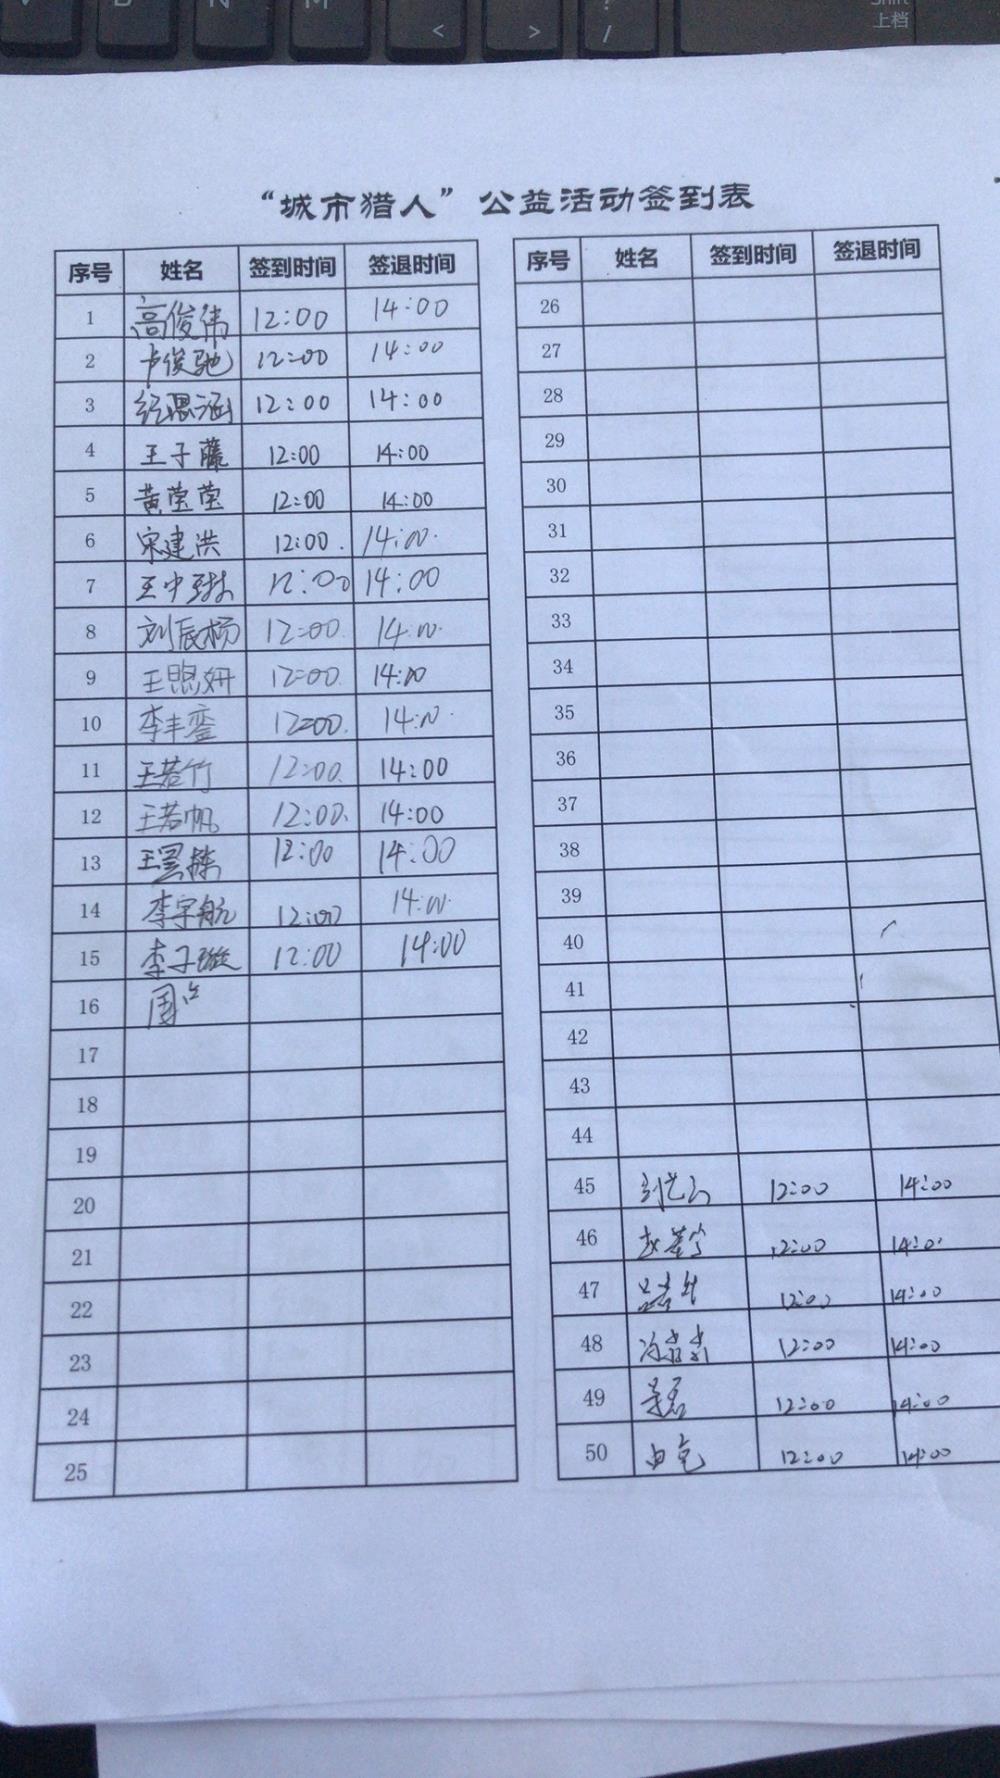 上档
“城市猎人”公益活动签到表
序号 姓名 签到时间 签退时间
1 高俊伟 12:00 14:00
2 卢俊驰 12:00 14:00
3 12:00 14:00
4 王子藤 12:00 14:00
5 黄莹莹 12:00 14:00
6 宋建洪 12:00. 14:00.
7 12:00 14:00
8 刘辰杨 12:00. 14:00.
9 12:00. 14:00
10 李丰銮 12:00. 14:00.
11 王若竹 12:00. 14:00
12 王若帆 12:00. 14:00
13 12:00 14:00
14 李宇航 12:00 14:00.
15 李子璇 12:00 14:00
16
17
18
19
20
21
22
23
24
25
序号 姓名 签到时间 签退时间
26
27
28
29
30
31
32
33
34
35
36
37
38
39
40
41
42
43
44
45 12:00 14:00
46 12:00 14:00
47 12:00 14:00
48 12:00 14:00
49 12:00 14:00
50 12:00 14:00